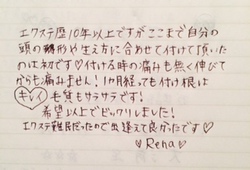 エクステ歴10年以上ですがここまで自分の
頭の形や生え方に合せて付けて頂いた
のは初です♡付ける時の痛みも無く伸びて
からも痛みません!1ヶ月経っても付け根は
キレイ 毛質もサラサラです!
希望以上でビックリしました!
エクステ難民だったので出逢えて良かったです♡
♡Rena